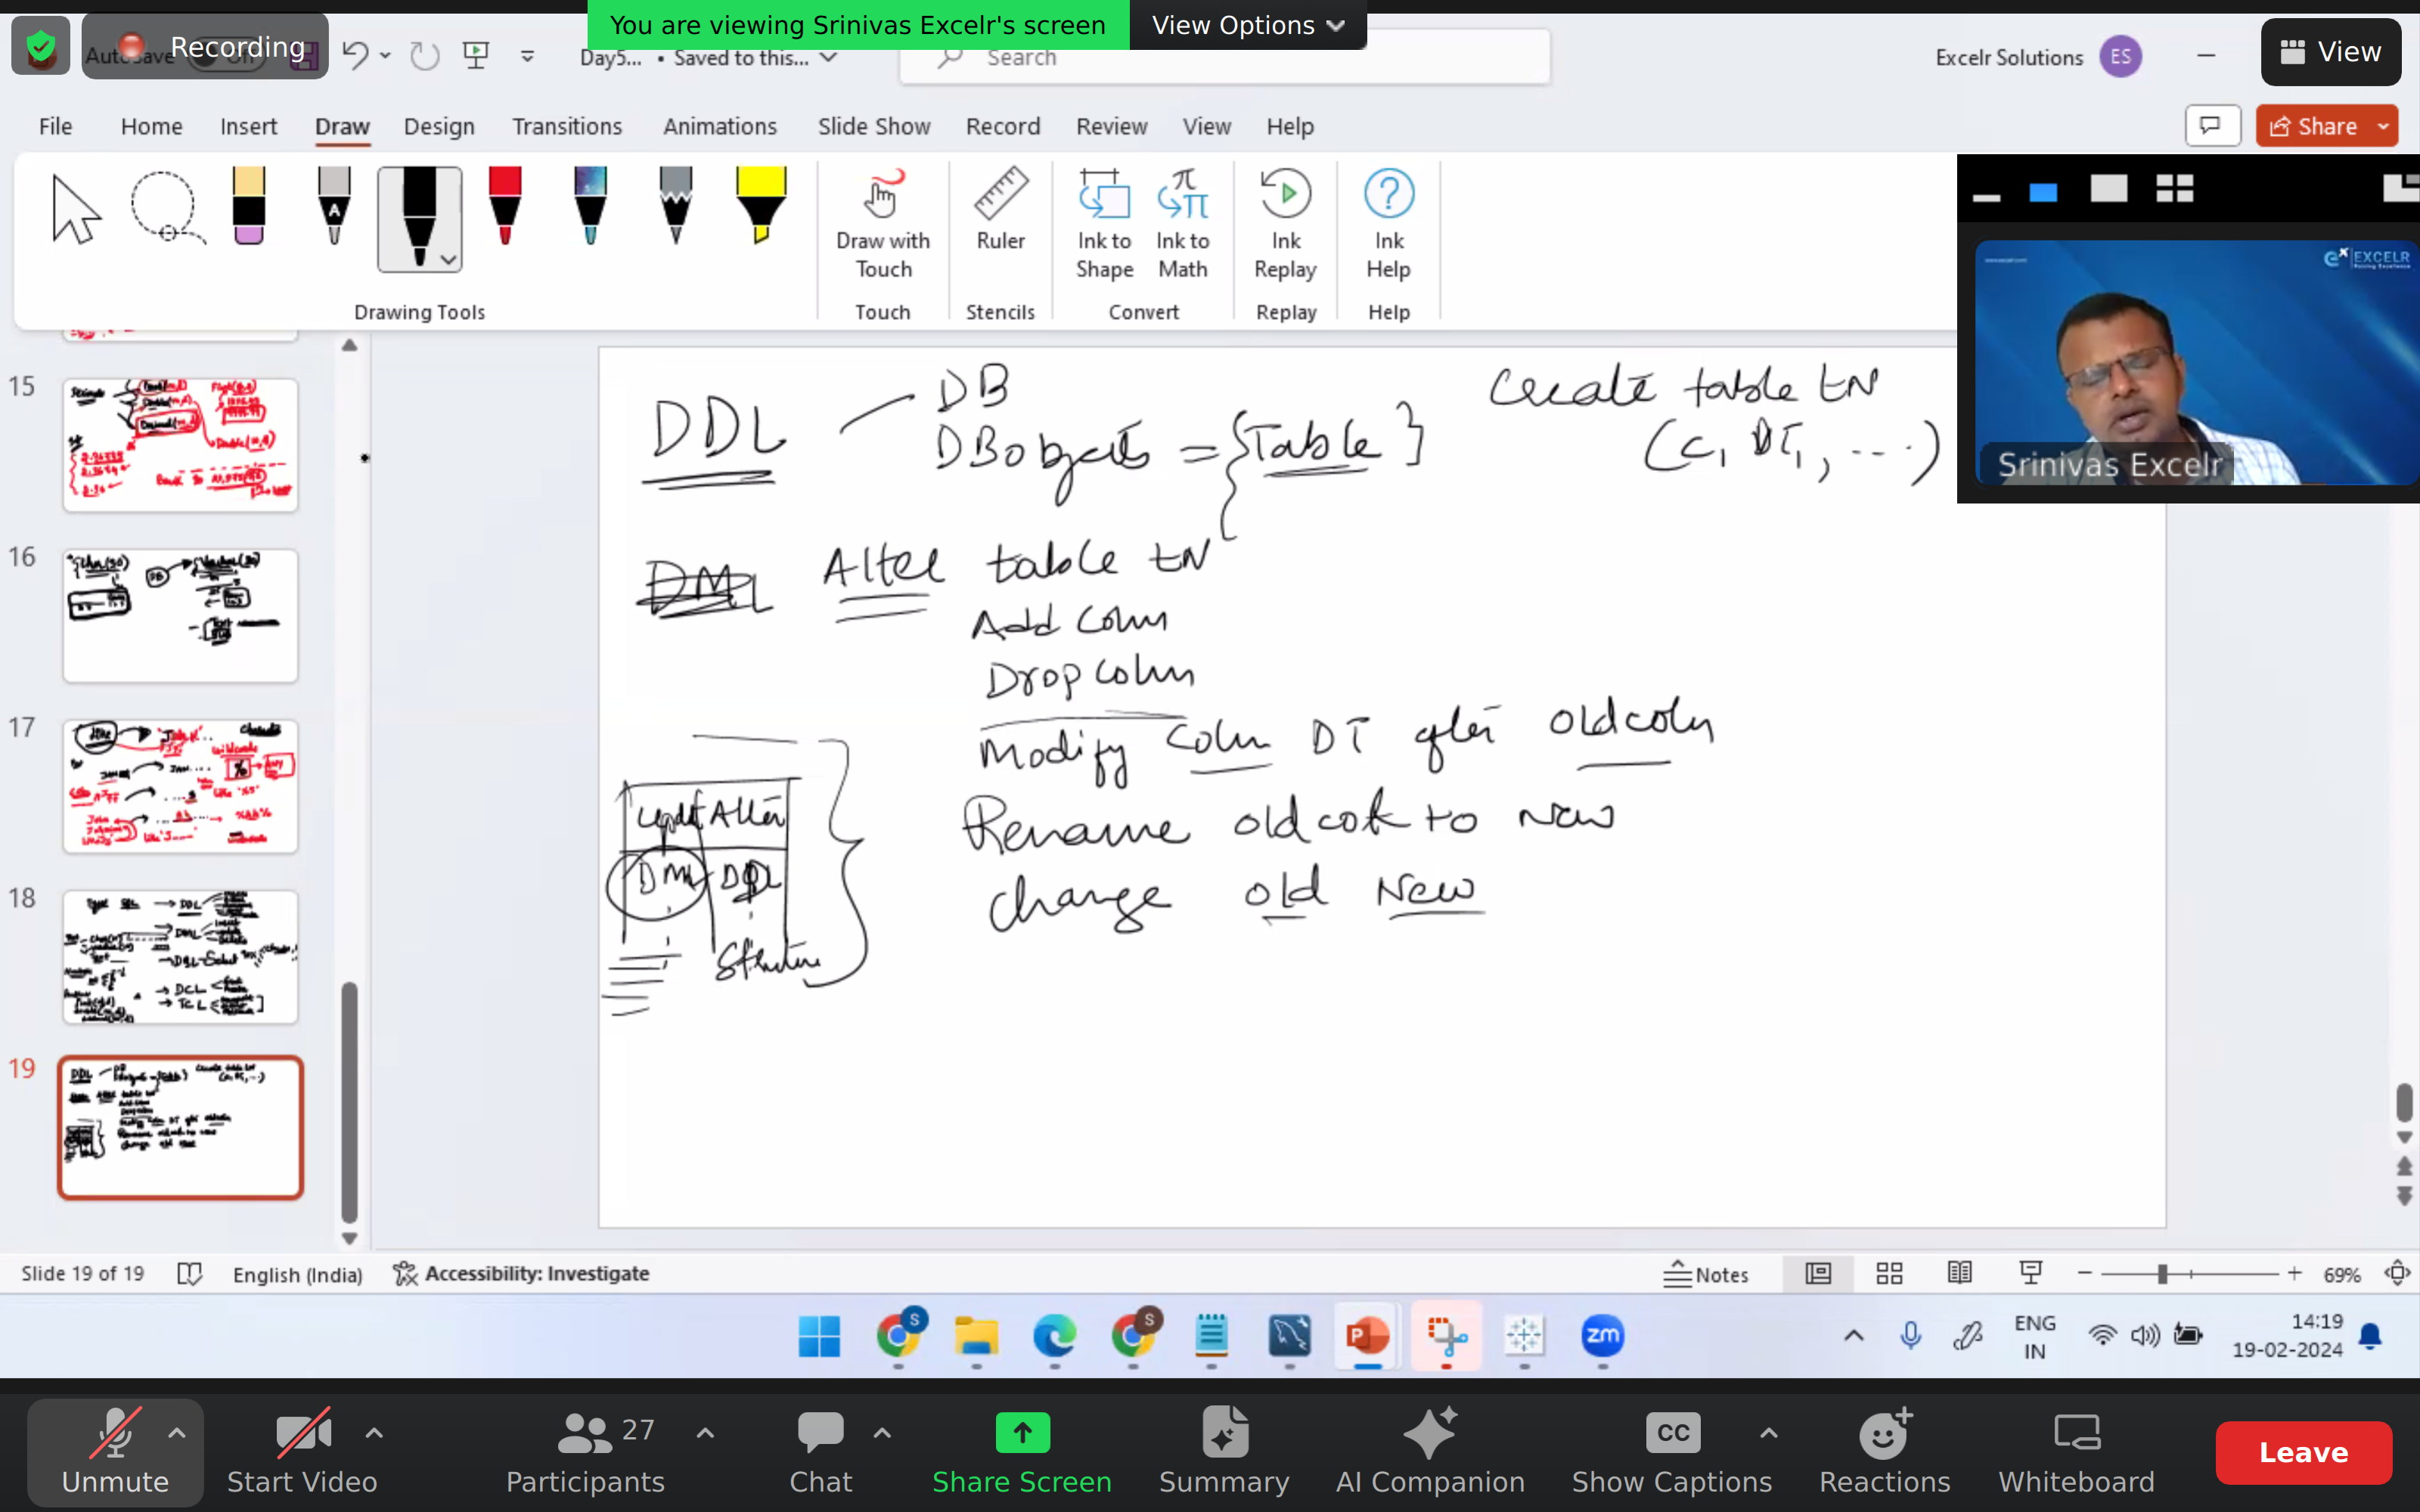 You are viewing Srinivas Excelr's screen
View Options
Recording
Day5... • Saved to this...
Search
Excelr Solutions
ES
View
File Home Insert Draw Design Transitions Animations Slide Show Record Review View Help
Share
Draw with Touch
Ruler
Ink to Shape
Ink to Math
Ink Replay
Ink Help
Drawing Tools
Touch
Stencils
Convert
Replay
Help
EXCELR
Srinivas Excelr
15
16
17
18
19
DDL
DB
DBobjects = {Table}
Create table tN
(C1 DT1, ....)
DML
Alter table tN
Add Colum
Drop Colum
Modify Colum DT after oldcolm
Rename oldcol to new
change old New
Update Alter
DML DDL
Structure
Slide 19 of 19
English (India)
Accessibility: Investigate
Notes
69%
ENG
IN
14:19
19-02-2024
zm
Unmute
Start Video
27
Participants
Chat
Share Screen
Summary
AI Companion
CC
Show Captions
Reactions
Whiteboard
Leave